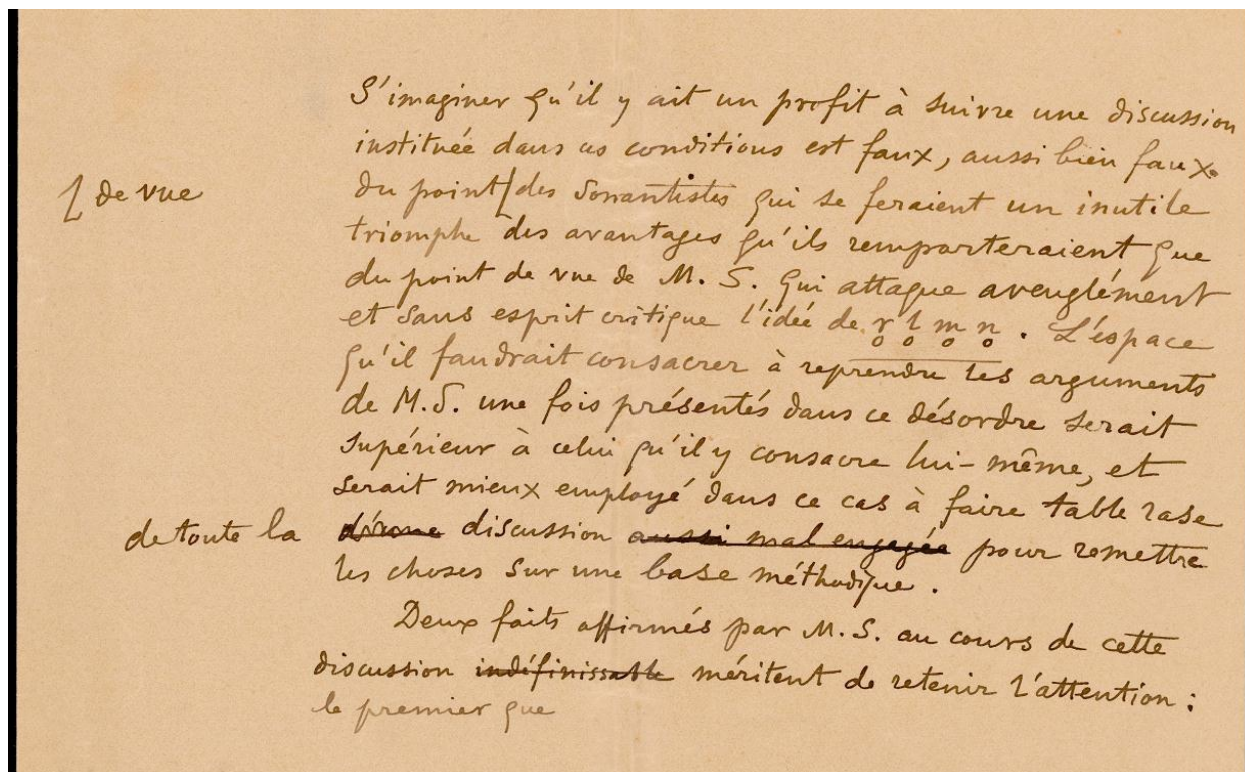 S'imaginer qu'il y ait un profit à suivre une discussion
instituée dans ces conditions est faux, aussi bien faux
⎱ de vue
du point ⎱ des sonantistes qui se feraient un inutile
triomphe des avantages qu'ils remporteraient que
du point de vue de M. S. qui attaque aveuglément
et sans esprit critique l'idée de r̥ l̥ m̥ n̥. L'espace
qu'il faudrait consacrer à reprendre les arguments
de M.S. une fois présentés dans ce désordre serait
supérieur à celui qu'il y consacre lui-même, et
serait mieux employé dans ce cas à faire table rase
de toute la discussion aussi mal engagée pour remettre
les choses sur une base méthodique.
Deux faits affirmés par M. S. au cours de cette
discussion indéfinissable méritent de retenir l'attention :
le premier que